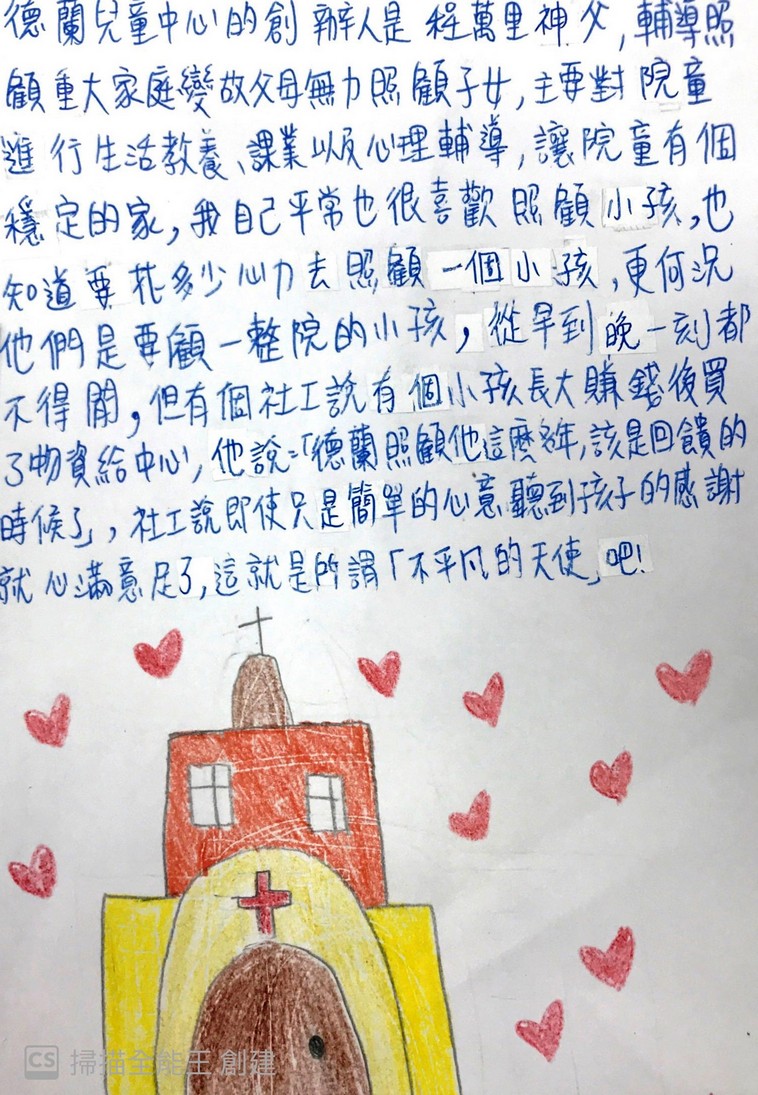 德蘭兒童中心的創辦人是程萬里神父,輔導照
顧重大家庭變故父母無力照顧子女,主要對院童
進行生活教養、課業以及心理輔導,讓院童有個
穩定的家,我自己平常也很喜歡照顧小孩,也
知道要花多少心力去照顧一個小孩,更何況
他們是要顧一整院的小孩,從早到晚一刻都
不得閒,但有個社工說有個小孩長大賺錢後買
了物資給中心,他說:「德蘭照顧他這麼多年,該是回饋的
時候了」,社工說即使只是簡單的心意聽到孩子的感謝
就心滿意足了,這就是所謂「不平凡的天使」吧!
CS 掃描全能王 創建